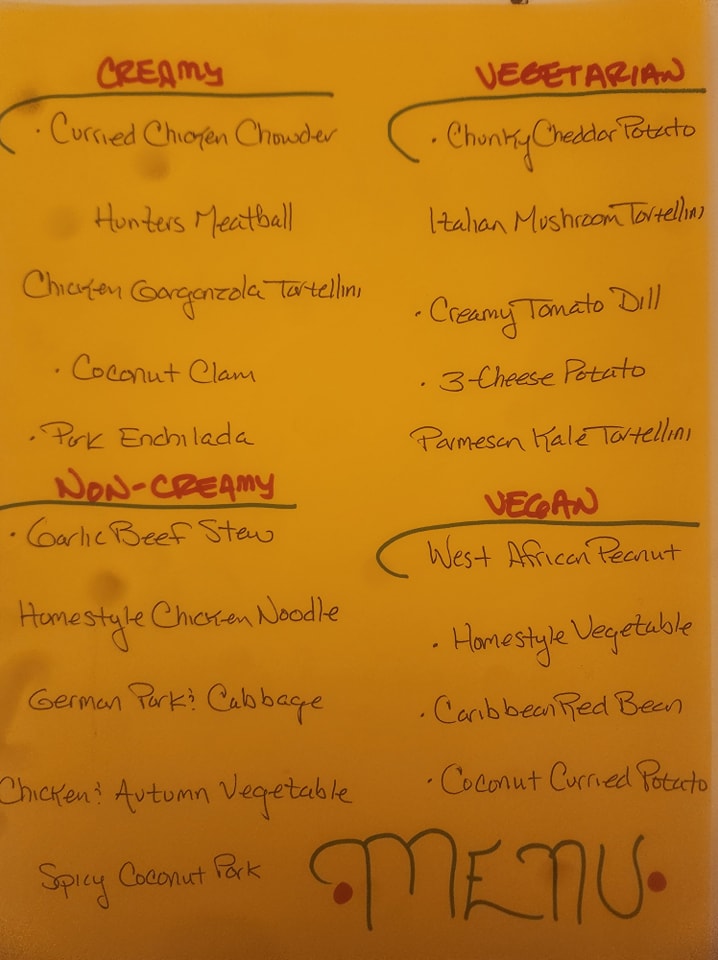 CREAMY
· Curried Chicken Chowder
Hunters Meatball
Chicken Gorgonzola Tortellini
· Coconut Clam
· Pork Enchilada
NON-CREAMY
· Garlic Beef Stew
Homestyle Chicken Noodle
German Pork & Cabbage
Chicken & Autumn Vegetable
Spicy Coconut Pork
VEGETARIAN
· Chunky Cheddar Potato
Italian Mushroom Tortellini
· Creamy Tomato Dill
· 3-Cheese Potato
Parmesan Kale Tortellini
VEGAN
West African Peanut
· Homestyle Vegetable
· Caribbean Red Bean
· Coconut Curried Potato
MENU